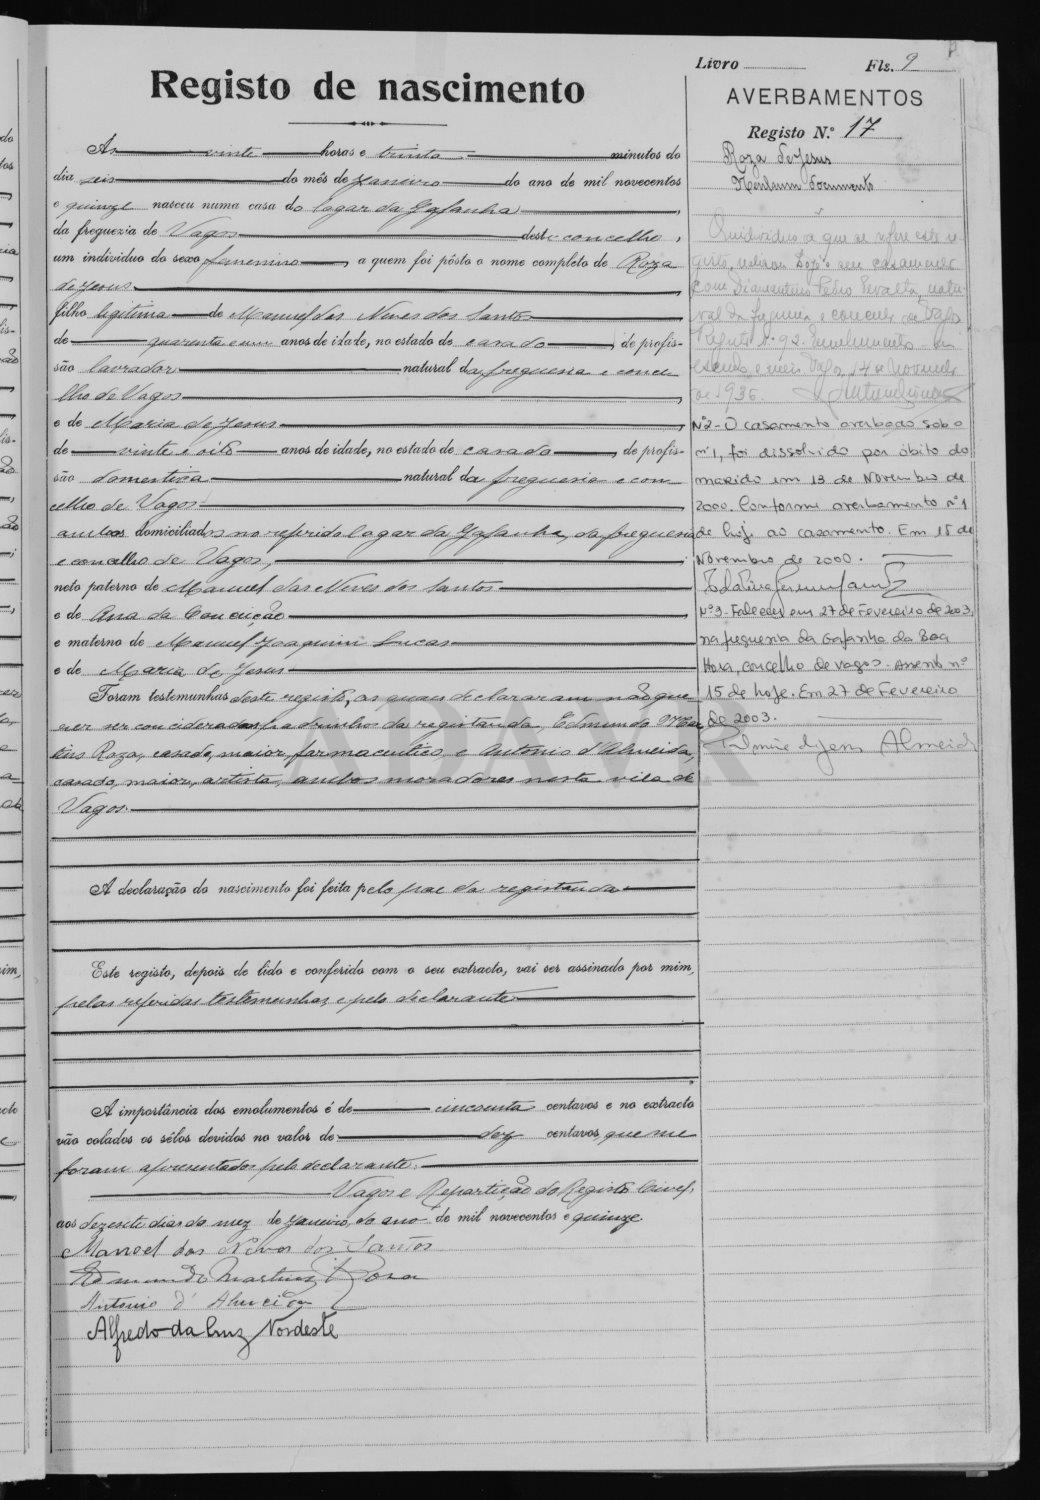 Registo de nascimento
Às vinte horas e trinta minutos do
dia seis do mês de Janeiro do ano de mil novecentos
e quinze nasceu numa casa do lagar da Gafanha,
da freguezia de Vagos deste concelho,
um individuo do sexo femenino, a quem foi pôsto o nome completo de Roza
de Jesus.
filho legitima de Manuel das Neves dos Santos
de quarenta e um anos de idade, no estado de casado, de profis-
são lavrador natural da freguesia e conce
lho de Vagos
e de Maria de Jesus
de vinte e oito anos de idade, no estado de casada, de profis-
são domestica natural da freguesia e con
celho de Vagos
ambos domiciliados no referido lagar da Gafanha, da freguesia
e concelho de Vagos,
neto paterno de Manuel das Neves dos Santos
e de Ana da Conceição
e materno de Manuel Joaquim Lucas
e de Maria de Jesus
Foram testemunhas deste registo, as quaes declararam não que
rer ser conciderados padrinhos da registanda, Edmundo Mar
tins Roza, casado, maior, farmaceutico, e Antonio d'Almeida,
casado, maior, artista, ambos moradores nesta vila de
Vagos.
A declaração do nascimento foi feita pelo pae da registanda
Este registo, depois de lido e conferido com o seu extracto, vai ser assinado por mim,
pelas referidas testemunhas e pelo declarante
A importância dos emolumentos é de cincoenta centavos e no extracto
vão colados os sêlos devidos no valor de dez centavos que me
foram apresentados pelo declarante.
Vagos e Repartição do Registo Civel,
aos dezesete dias do mez de Janeiro do ano de mil novecentos e quinze.
Manoel das Neves dos Santos
Edmundo Martins Rosa
Antonio d'Almeida
Alfredo da Cruz Nordeste
Livro Fls. 9
AVERBAMENTOS
Registo N.º 17
Roza de Jesus
Nenhum documento
O individuo a que se refere este re
gisto, casamento
com Diamantino Pedro natu
ral da freguesia e concelho de Vagos
Registo nº 92. Emolumento - um
escudo e meio. Vagos, 14 de Novembro
de 1936.
Nº2 - O casamento averbado sob o
nº1, foi dissolvido por óbito do
marido em 13 de Novembro de
2000. Conforme averbamento nº 1
de hoje ao casamento. Em 15 de
Novembro de 2000.
Nº3 - Faleceu em 27 de Fevereiro de 2003,
na freguesia da Gafanha da Boa
Hora, concelho de Vagos - Assento nº
15 de hoje. Em 27 de Fevereiro
de 2003.
Almeida